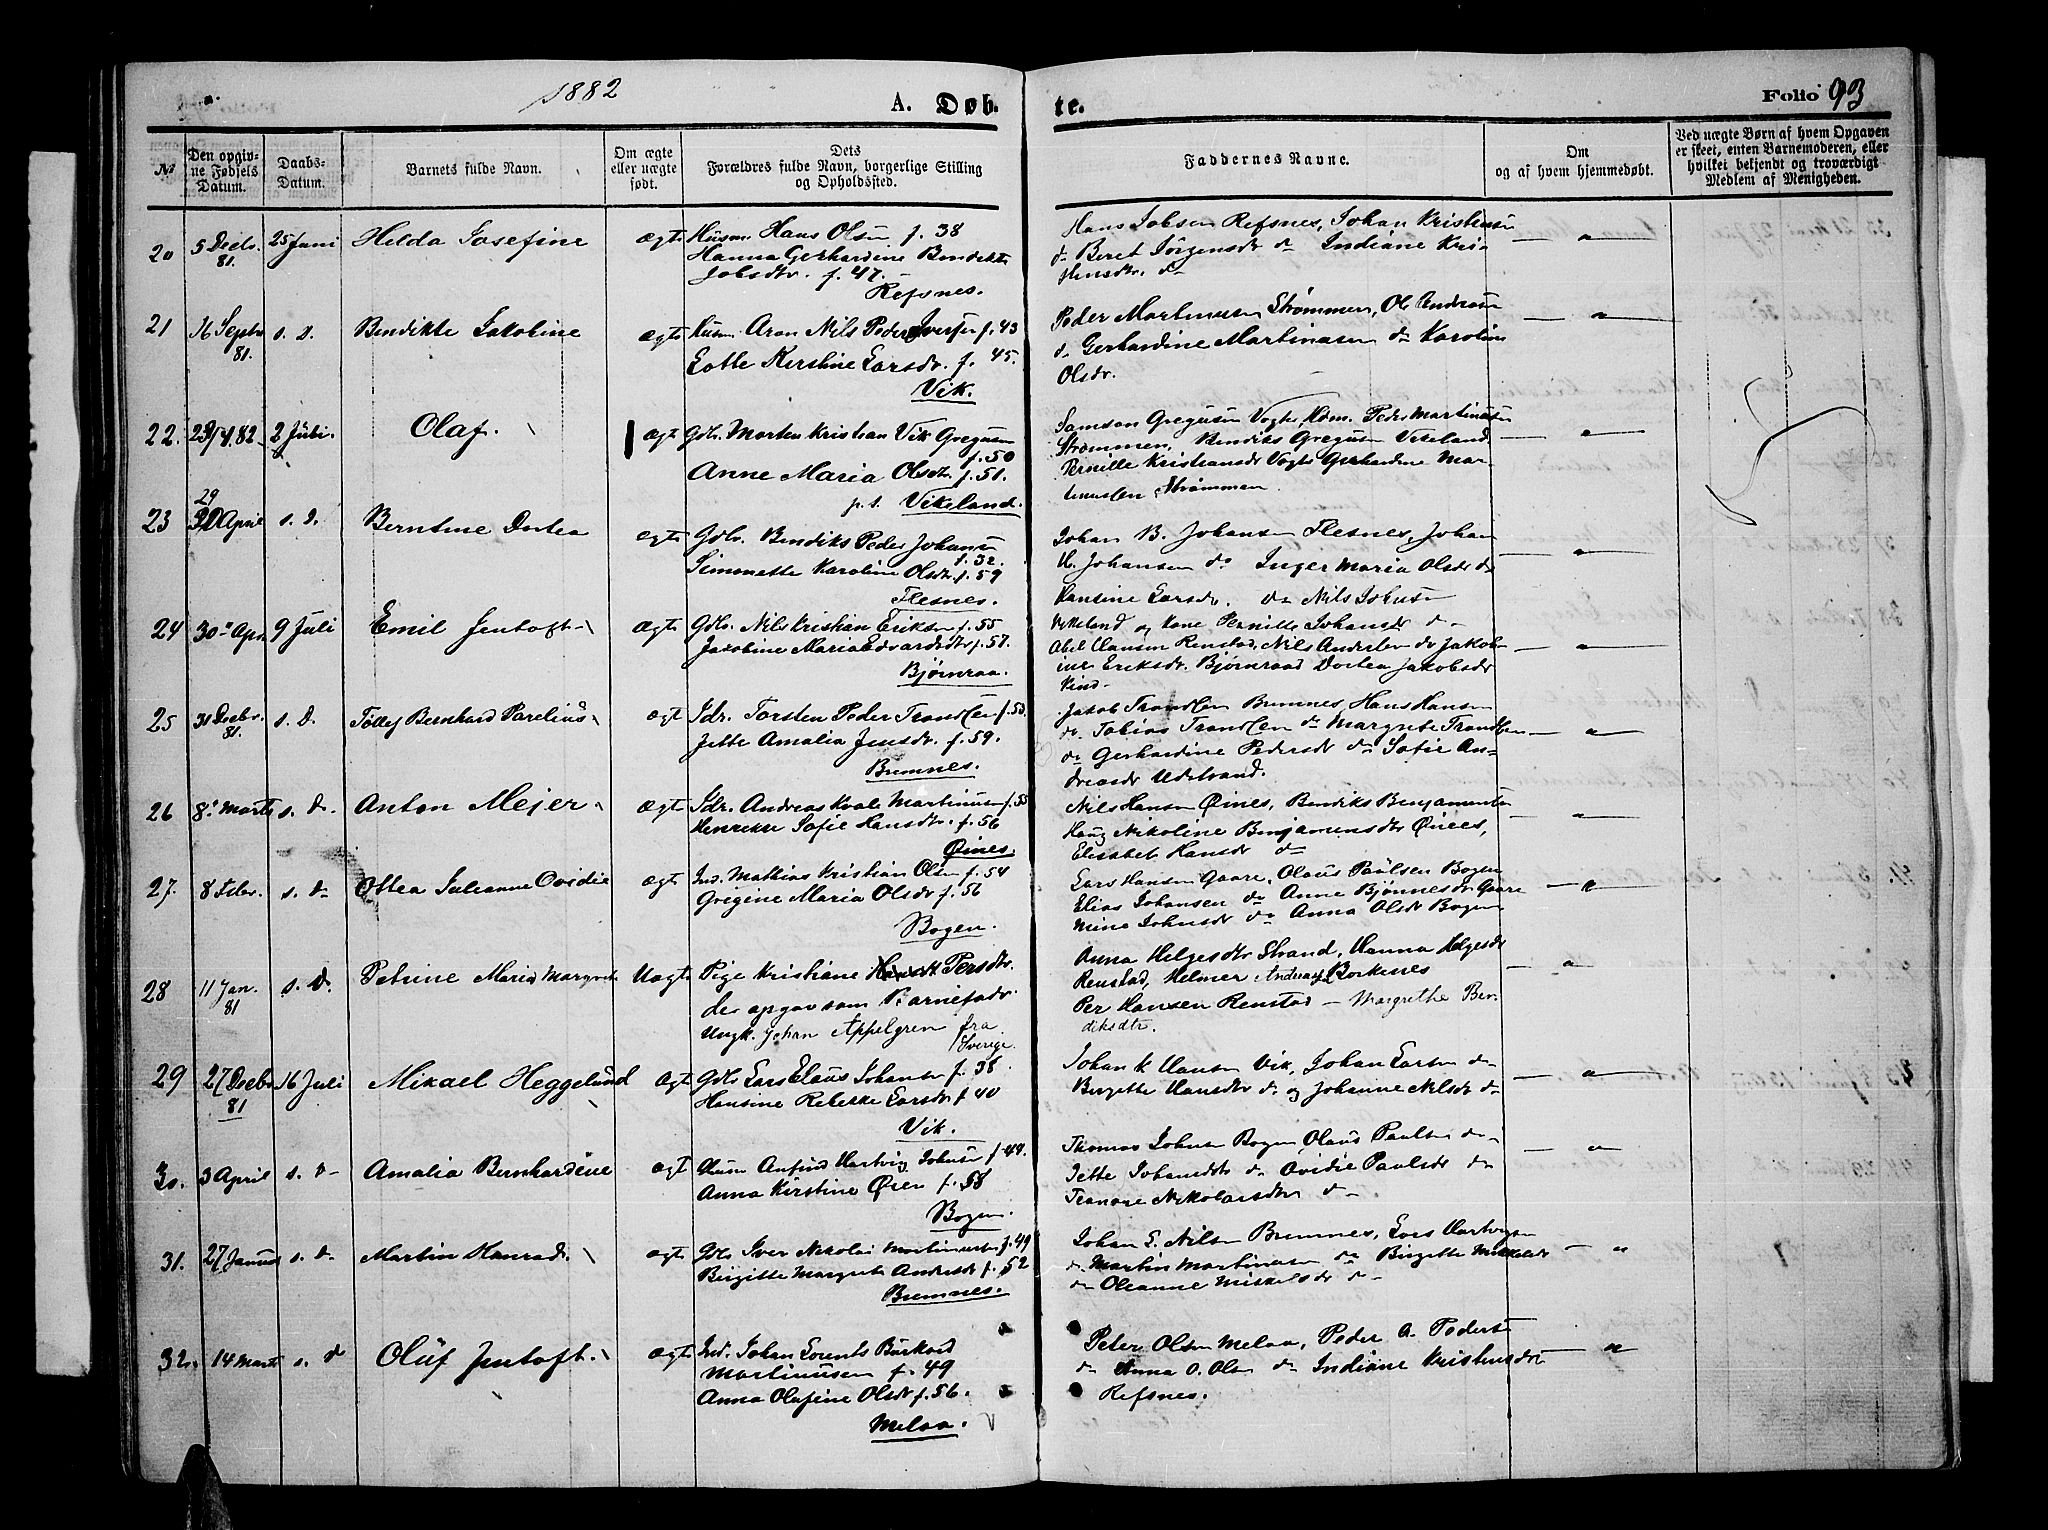 1882
A. Døb-
te.
Folio 93
№
Den opgiv-
ne Fødsels
Datum.
Daabs-
Datum.
Barnets fulde Navn.
Om ægte
eller uægte
født.
Dets
Forældres fulde Navn, borgerlige Stilling
og Opholdssted.
Faddernes Navne.
Om
og af hvem hjemmedøbt.
Ved uægte Børn af hvem Opgaven
er skeet, enten Barnemoderen, eller
hvilket bekjendt og troværdigt
Medlem af Menigheden.
20
5 Decbr.
81.
25 Juni
Helda Josefine
ægte
Husm. Hans Olsen f. 38
Hanna Gerhardine Bendikte
Jobsdtr. f. 47.
Refsnes.
Hans Jobsen Refsnes, Johan Kristensen
do Beret Jørgensdr do Indiane Kris-
tensdtr. do
21
16 Septbr
81.
s. d.
Bendikte Jakobine
ægte
Husm. Aron Nils Peder Iversen f. 43
Lotte Kirstine Larsdr. f. 45.
Vik.
Peder Martinusen Strømmen, Ol Andersen
do Gerhardine Martinusen do Karoline
Olsdr.
22.
29/4 82.
2 Juli.
Olaf.
ægte
Gdbr. Morten Kristian Vik Gregusen
f. 50
Anne Maria Olsdtr. f. 51.
p. t. Vikeland.
Samson Gregusen Vogts, Hdm. Peder Martinusen
Strømmen, Bendiks Gregusen Vikeland
Pernille Kristiansdr Vogts Gerhardine Mar-
tinussen Strømmen.
23
29
30 April
s. d.
Berntine Dortea
ægte
Gdbr. Bendiks Peder Johansen
f. 32.
Simonette Karoline Olsdtr. f. 59
Flesnes.
Johan B. Johansen Flesnes, Johan
H. Johansen do Inger Maria Olsdr do
Hansine Larsdr. do Nils Johnsen
Vikeland og Kone Pernille Johansdr do
24
30' Apr.
9 Juli
Emil Jentoft
ægte
Gdbr. Nils Kristian Eriksen f. 55
Jakobine Maria Edvardsdtr f. 57.
Bjørnraa.
Abel Hansen Renstad, Nils Andersen do Jakob-
ine Eriksdr. Bjørnraa Dortea Jakobsdr
Kind.
25
31 Decbr.
81.
s. d.
Tollef Bernhard Parelius
ægte
Idr. Torsten Peder Trondsen f. 53
Jette Amalia Jensdr. f. 59.
Bremnes.
Jakob Trondsen Bremnes, Hans Hansen
do. Tobias Trondsen do Margrete Trondsen
do Gerhardine Pedersdr do Sofie An-
dreasdr Udstrand.
26
8' Marts
s. d.
Anton Mejer
ægte
Idr. Andreas Kvale Martinusen f. 55
Henrikke Sofie Hansdtr. f. 56
Øines.
Nils Hansen Øines, Bendiks Benjaminsen
Haug Nikoline Benjaminsdtr Øines,
Elisabet Hansdr do
27.
8 Febr.
s. d.
Ottea Julianne Ovidie
ægte
Ind. Mathias Kristian Olsen f. 54
Grigine Maria Olsdr f. 56
Bogen.
Lars Hansen Gaare, Olaus Paulsen Bogen
Elias Johansen do Anne Bjønnesdr Gaare
Mina Johnsdr do Anna Olsdr Bogen
28
11 Jan.
81
s. d.
Petrine Maria Margrete
Uægte
Pige Kristiane Persdtr.
der opgav som Barnefadr.
Ungk. Johan Appelgren fra
Sverige.
Anna Helgesdtr Strand, Hanna Helgesdr
Renstad, Helmer Andreas Borkenes
Per Hansen Renstad – Margrethe Ben-
diksdtr.
29
27 Decbr
81
16 Juli
Mikael Heggelund
Ægte
Gdbr Lars Elaus Johansen f. 38
Hansine Rebekke Larsdr f. 40
Vik.
Johan K Hansen Vik, Johan Larsen do
Birgette Hansdtr do og Johanne Nilsdr do
30.
3 April
s. d
Amalia Bernhardine
ægte
Husm Anfind Hartvig Johnsen f. 49.
Anna Kirstine Øien f. 58
Bogen.
Thomas Johnsen Bogen Olaus Paulsen do
Jette Johansdtr do Ovidie Paulsdr do
Jeanore Nikolaisdtr do
31.
27 Januar
s. d.
Martin Konrad.
ægte
Gdbr Iver Nikolai Martinussen f. 49
Birgitte Margrete Andersdr f. 52
Bremnes.
Johan E. Nilsen Bremnes, Lars Hartvigsen
do Martin Martinusen do Birgitte Mikkelsdr
do Oleanne Mikkelsdr do
32.
14 Marts
s. d
Oluf Jentoft.
ægte
Ind. Johan Lorents Burkord
Martinussen f. 49
Anna Olafine Olsdr f. 56.
Melaa.
Peter Olsen Melaa, Peder A. Pedersen
do Anna O. Olsen do Indiane Kristensdtr
Refsnes.